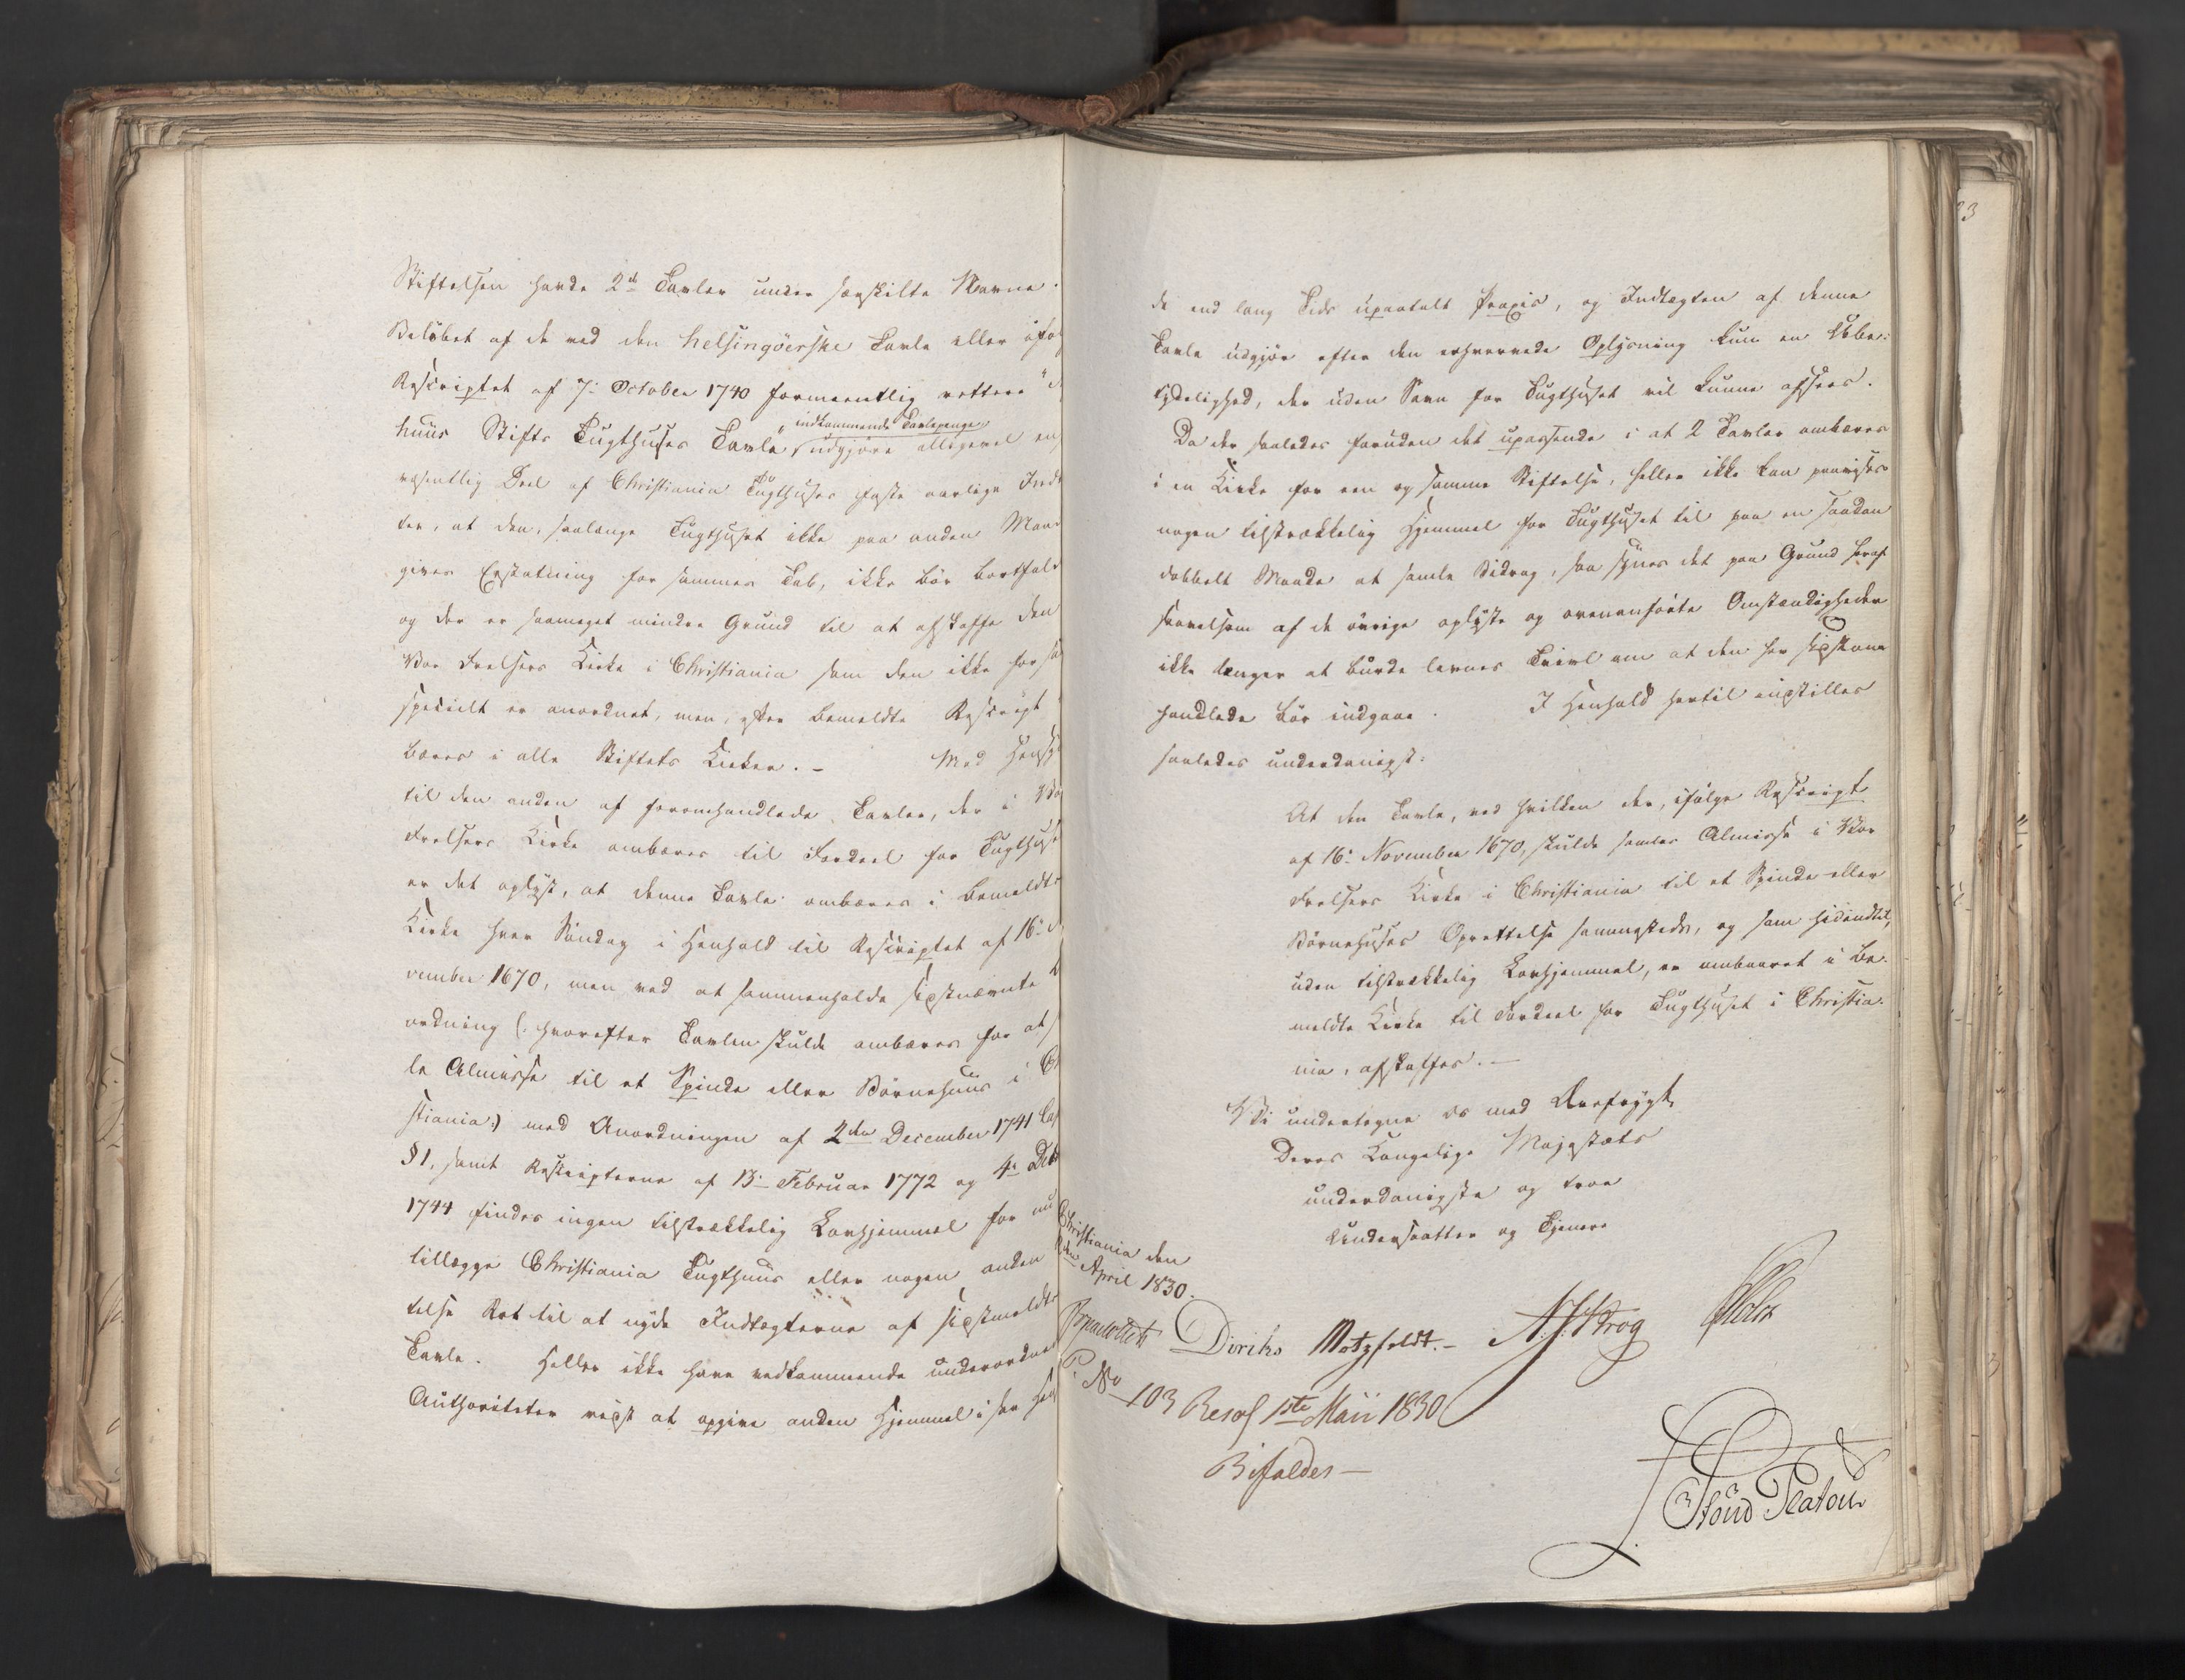 Stiftelsen havde 2de Tavler under særskilte Navne.
Beløbet af de ved den Helsingöerske Tavle eller iføl
Rescriptet af 7. October 1740 formeentlig rettere "
huus Stifts Tugthuses Tavle" indkommende Tavlepenge udgjøre alligevel en
væsentlig Deel af Christiania Tugthuses faste aarlige Indt
ter, at den, saalange Tugthuset ikke paa anden Maa
gives Erstatning for sammes Tab, ikke bör bortfald
og der er saameget mindre Grund til at afskaffe den
Vor Frelsers Kirke i Christiania som den ikke for
specielt er anordnet, men, efter bemeldte Rescript
bæres i alle Stiftets Kirker. - Med Hensy
til den anden af foromhandlede Tavler, der i Vo
Frelsers Kirke ombæres til Fordeel for Tugthuse
er det oplyst, at denne Tavle ombæres i bemeldte
Kirke hver Söndag i Henhold til Rescriptet af 16. 
vember 1670, men ved at sammenholde sidstnævnte
ordning (: hvorefter Tavlen skulde ombæres for at
le Almisse til et Spinde eller Börnehuus i
stiania:) med Anordningen af 2den December 1741
§1, samt Rescripterne af 13. Februar 1772 og 4.
1744 findes ingen tilstrækkelig Lovhjemmel for
tillægge Christiania Tugthuus eller nogen anden
telse Ret til at nyde Indtægterne af sidstmeldte
Tavle. Heller ikke have vedkommende underordne
Authoriteter vidst at opgive anden Hjemmel i saa
de end lang Tids upaatalt Praxis, og Indtægten af denne
Tavle udgjör efter den erhvervede Oplysning kun en Ube-
tydelighed, der uden Savn for Tugthuset vil kunne afsees.
Da der saaledes foruden det upassende i at 2 Tavler ombæres
i en Kirke for een og samme Stiftelse, heller ikke kan paavises
nogen tilstrækkelig Hjemmel for Tugthuset til paa en saadan
dobbelt Maade at samle Bidrag, saa synes det paa Grund heraf
saavelsom af de övrige oplyste og ovenanförte Omstændigheder
ikke længer at burde levnes Tvivl om at den her sidst om-
handlede bör indgaae. I Henhold hertil indstilles
saaledes underdanigst:
At den Tavle, ved hvilken der, ifölge Rescript
af 16. November 1670, skulde samles Almisse i Vor
Frelsers Kirke i Christiania til et Spinde eller
Börnehuses Oprettelse sammesteds, og som hidindtil,
uden tilstrækkelig Lovhjemmel, er ombaaret i be-
meldte Kirke til Fordeel for Tugthuset i Christia-
nia, afskaffes. -
Vi undertegne os med Ærefrygt,
Deres Kongelige Majestæts
underdanigste og troe
Undersaatter og Tjenere
Christiania den
April 1830.
Diriks Motzfeldt. - Krog Holst
P. No 103 Resol 1ste Maii 1830
Bifaldes -
Stoud Platou